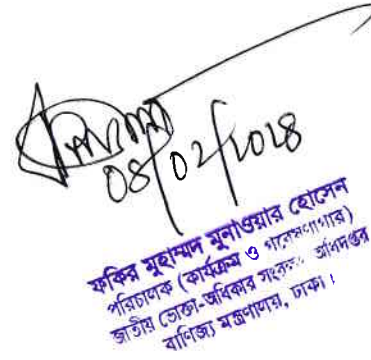 08/02/2028
ফকির মুহাম্মদ মুনাওয়ার হোসেন
পরিচালক (কার্যক্রম ও গবেষণাগার)
জাতীয় ভোক্তা-অধিকার সংরক্ষণ অধিদপ্তর
বাণিজ্য মন্ত্রণালয়, ঢাকা।